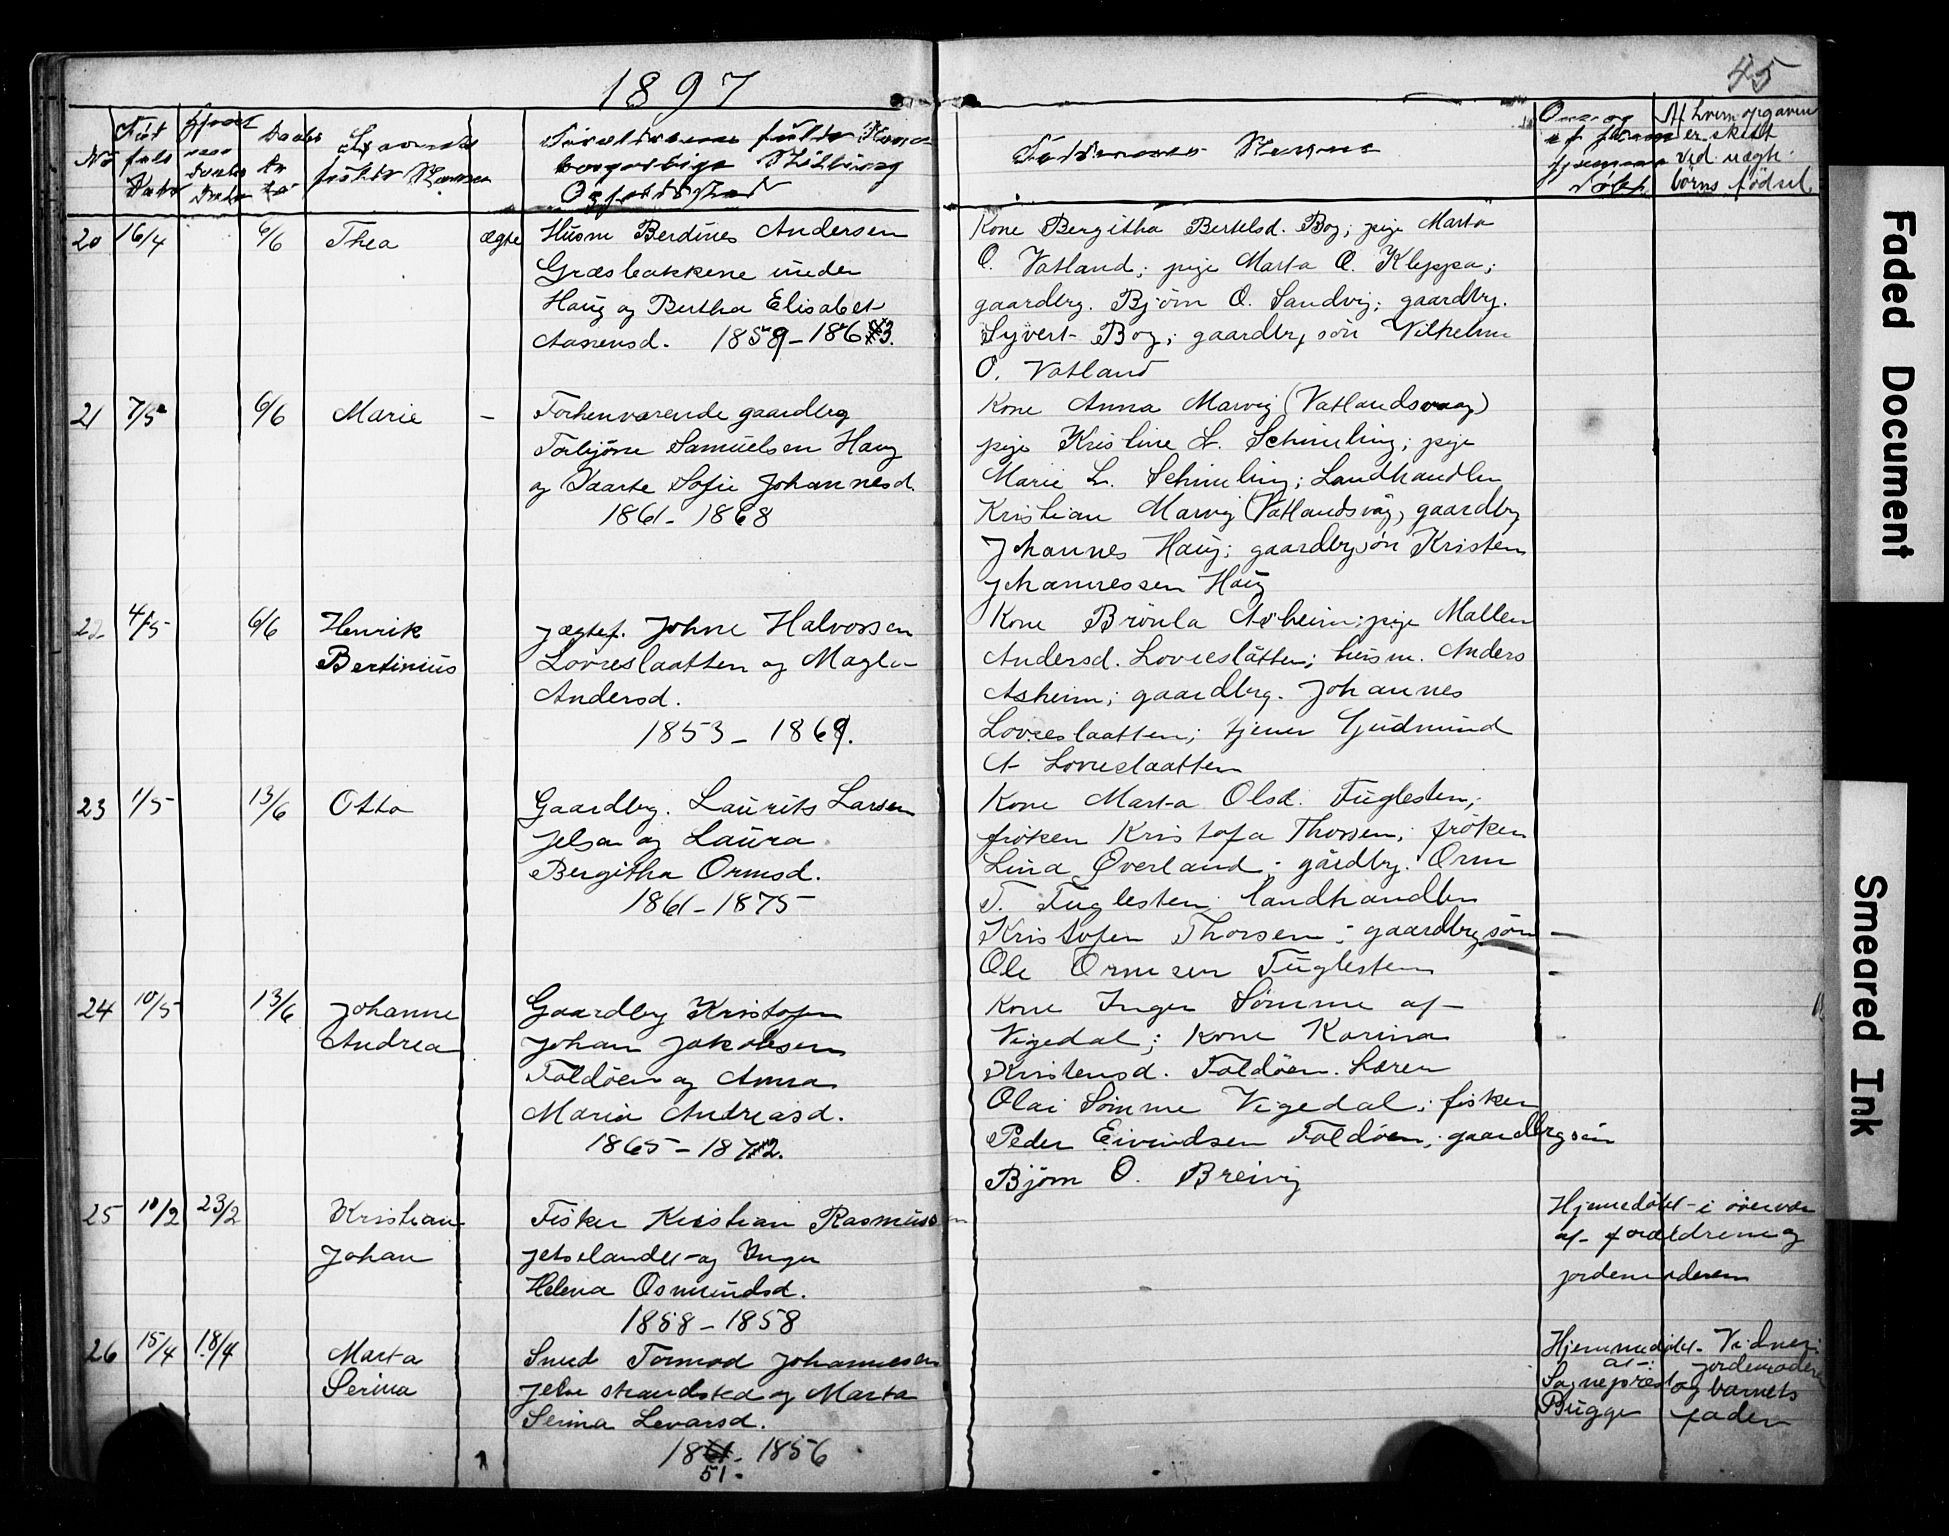 1897
45
No
Fød
sels
Datum
Hjemme
døbt
Datum
Daabs
Da
to
Barnets
fulde Navn
Forældrenes fulde Navne
borgerlige Stilling
Opholdssted
Faddernes Navne
Om og
af hvem
hjemme
døbt
Af hvem opgaven
er skedt
ved uægte
børns fødsel
20 16/4 6/6 Thea ægte
Husm Berdines Andersen
Græsbakkene under
Haug og Bertha Elisabet
Aanensd. 1859-1863.
Kone Bergitha Bertelsd. Bog; pige Marta
O. Vatland; pige Marta O. Kleppa;
gaardbrg. Bjørn O. Sandvig; gaardbrg.
Syvert Bog; gaardbrg søn Vilhelm
O. Vatland
21 7/5 6/6 Marie -
Forhenværende gaardbrg
Torbjørn Samuelsen Haug
og Vaarte Sofie Johannesd.
1861-1868
Kone Anna Marvig (Vatlandsvaag)
pige Kristine L. Schimeling; pige
Marie L. Schimeling; Landhandler
Kristian Marvig (Vatlandsvåg, gaardbrg
Johannes Haug; gaardbrgsøn Kristen
Johannessen Haug
22 4/5 6/6 Henrik
Bertinius
Jægtef. Johne Halvorsen
Lovraslaatten og Magla
Andersd.
1853-1869.
Kone Brönla Asheim; pige Mallen
Andersd. Lovraslåtten; husm. Anders
Asheim; gaardbrg. Johannes
Lovraslaatten; tjener Gudmund
A Lovraslaatten
23 1/5 13/6 Otto
Gaardbrg. Laurits Larsen
Jelsa og Laura
Bergitha Ormsd.
1861-1875
Kone Marta Olsd. Fuglesten;
frøken Kristofa Thorsen; frøken
Lina Øverland; gårdbrg. Orm
T. Fuglesten; landhandler
Kristofer Thorsen; gaardbrgsøn
Ole Ormsen Fuglesten
24 10/5 13/6 Johanne
Andrea
Gaardbrg Kristofer
Johan Jakobsen
Foldöen og Anna
Maria Andreasd.
1865-1872.
Kone Inger Sömme af
Vigedal; kone Karina
Kristensd. Foldöen. Lærer
Olai Sömme Vigedal; fisker
Peder Eivindsen Foldöen; gaardbrgsön
Björn O. Breivig
25 10/2 23/2 Kristian
Johan
Fisker Kristian Rasmussen
Jelselandet og Inger
Helena Osmundsd.
1858-1858
Hjemmedöbt i overvær
af forældrene og
jordemoderen
26 15/4 18/4 Marta
Serina
Smed Tormod Johannesen
Jelse strandsted og Marta
Serina Levarsd.
1861-1856
51.
Hjemmedøbt Vidner:
af jordemoder
Sognepræst og barnets
Bugge fader
Faded Document
Smeared Ink